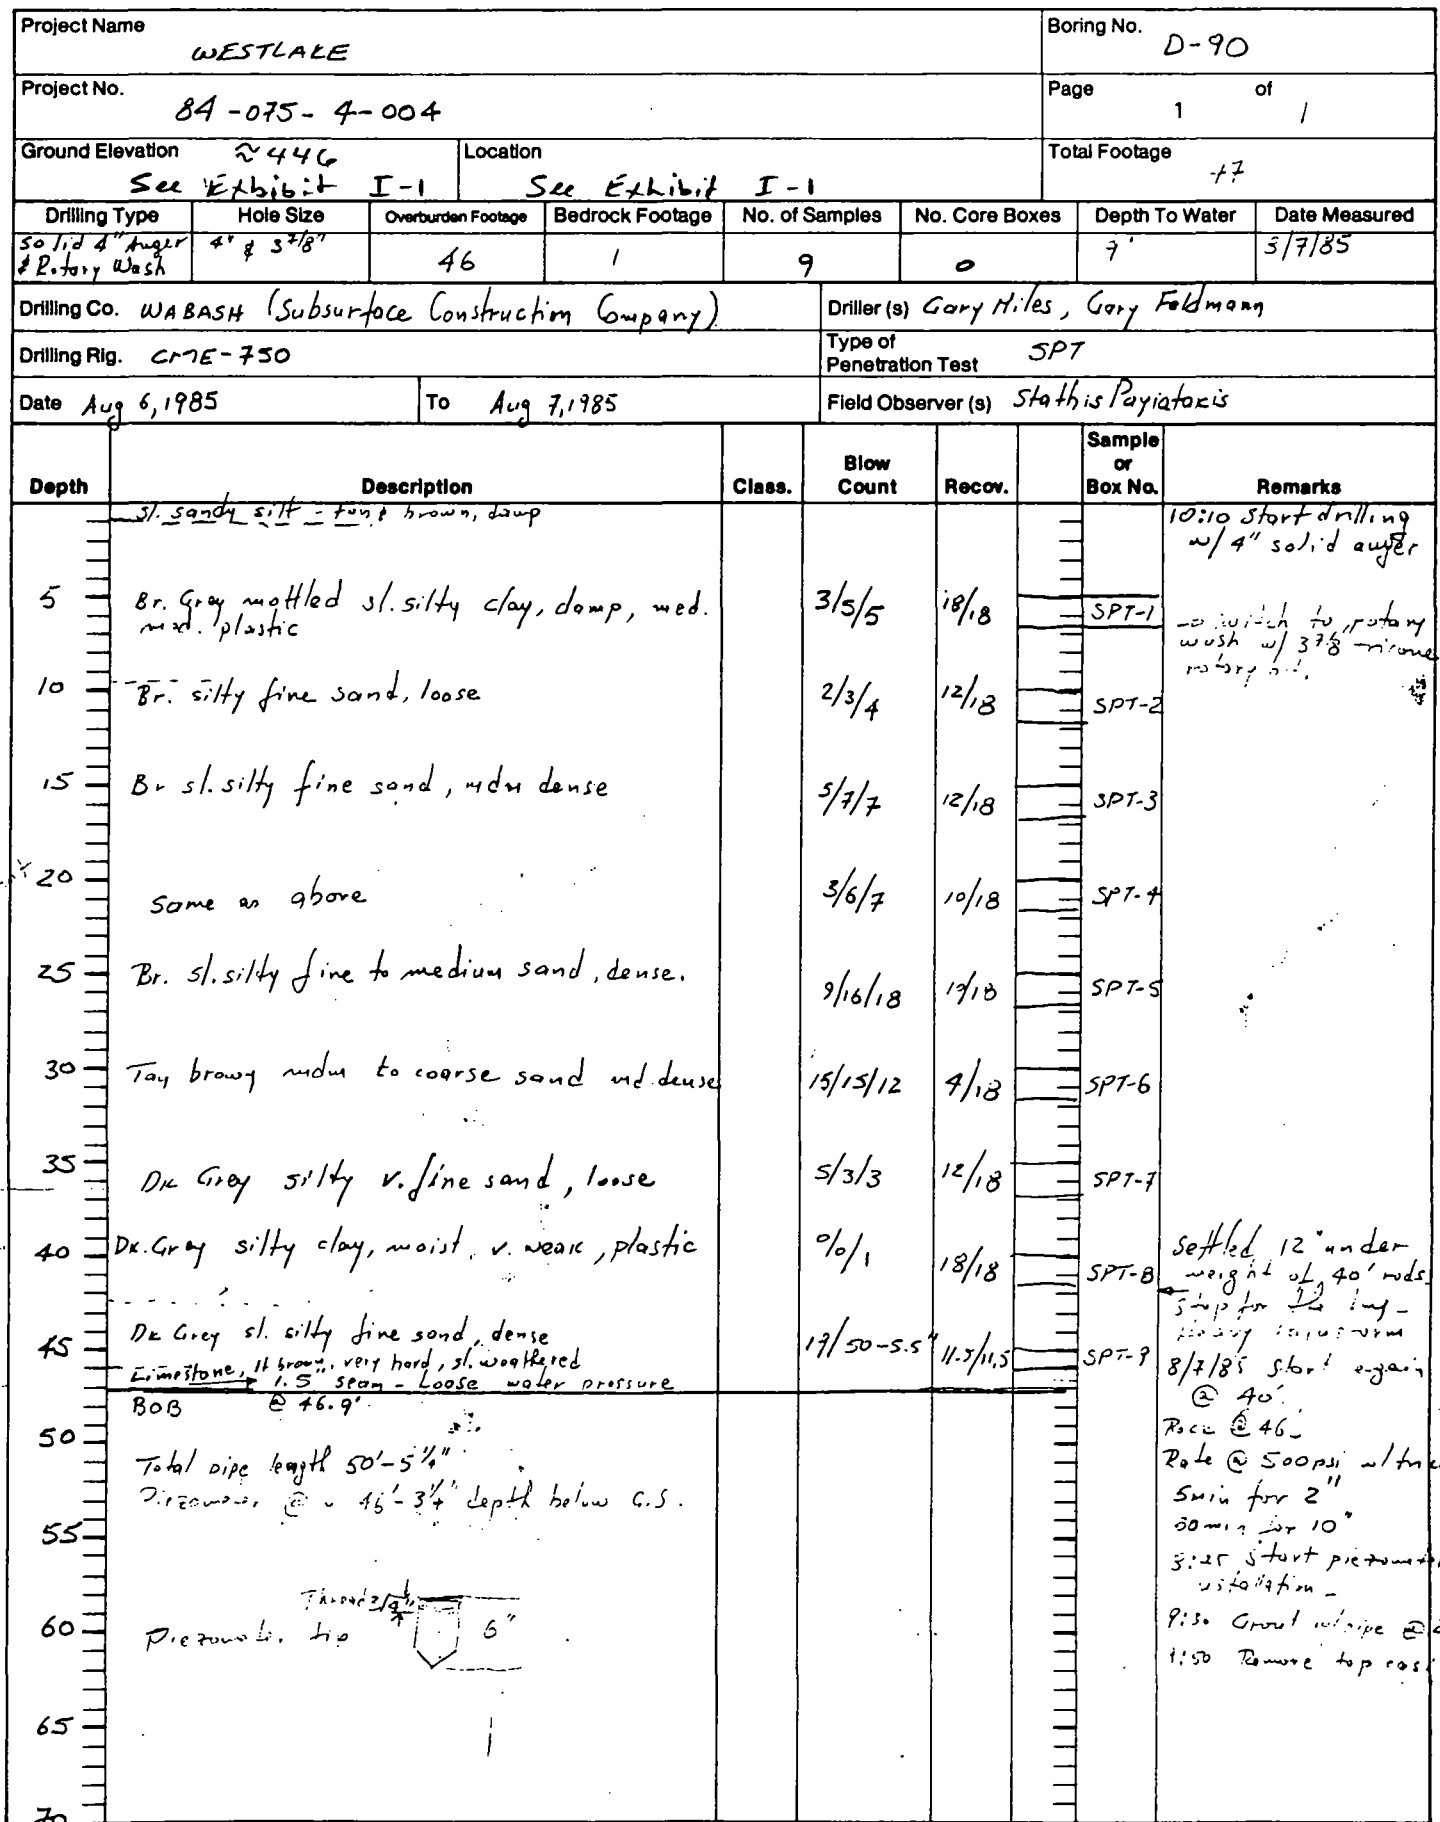 Project Name
WESTLAKE
Boring No.
D-90
Project No.
84-075-4-004
Page 1 of 1
Ground Elevation ≈ 446
See Exhibit I-1
Location
See Exhibit I-1
Total Footage
47
Drilling Type Hole Size Overburden Footage Bedrock Footage No. of Samples No. Core Boxes Depth To Water Date Measured
Solid 4" Auger 4" & 3 7/8" 46 1 9 0 3/7/85
& Rotary Wash
Drilling Co. WABASH (Subsurface Construction Company) Driller (s) Gary Miles, Gary Feldmann
Drilling Rig. CME-750 Type of Penetration Test SPT
Date Aug 6, 1985 To Aug 7, 1985 Field Observer (s) Stathis Payiatakis
Depth Description Class. Blow Count Recov. Sample or Box No. Remarks
sl. sandy silt - tan & brown, damp
10:10 Start drilling
w/ 4" solid auger
5 Br. Grey mottled sl. silty clay, damp, med. 3/5/5 18/18 SPT-1
plastic
switch to rotary
wash w/ 3 7/8
rotary
10 Br. silty fine sand, loose 2/3/4 12/18 SPT-2
15 Br sl. silty fine sand, mdm dense 5/7/7 12/18 SPT-3
20 Same as above 3/6/7 10/18 SPT-4
25 Br. sl. silty fine to medium sand, dense. 9/16/18 SPT-5
30 Tan brown mdm to coarse sand md. dense 15/15/12 4/18 SPT-6
35 Dk Grey silty v. fine sand, loose 5/3/3 12/18 SPT-7
40 Dk. Grey silty clay, moist, v. weak, plastic 0/0/1 18/18 SPT-8
Settled 12" under
weight of 40' rods
Stop for
Heavy
45 Dk Grey sl. silty fine sand, dense 50-5.5" 11.5/11.5 SPT-9
Limestone, lt brown, very hard, sl. weathered
1.5" seam - Loose water pressure
8/7/85 start again
@ 40'
BOB @ 46.9'
Rock @ 46
50
Total pipe length 50'-5 1/4"
Rate @ 500psi
depth below G.S.
5min for 2"
for 10"
55
Start
Thread
60 Piezometer tip 6"
Grout
Remove top
65
70